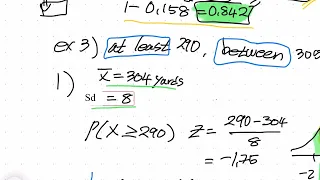 1-0.158=0.842
ex 3) at least 290, between 308
1) x̄=304 yards
Sd = 8
P(X≥290) Z = 290-304/8
= -1.75
-2